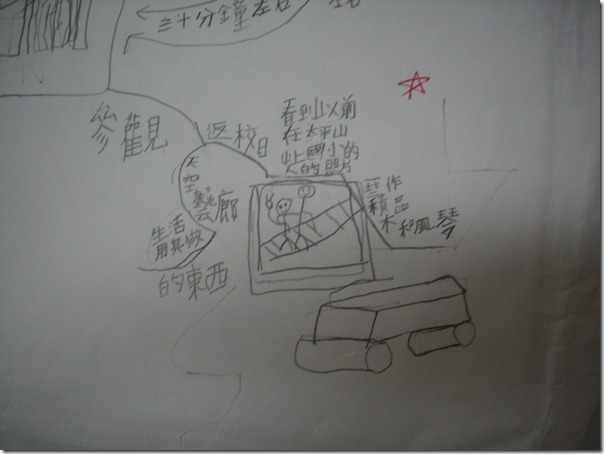 三十分鐘左右
參觀
返校日
看到以前
在太平山
國小的
人的照片
太空藝廊
生活
用具做
的東西
些作
積品
木和風琴